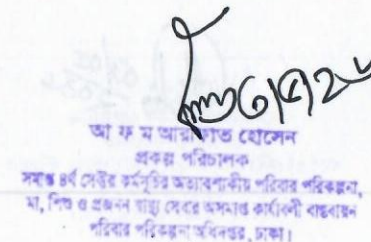 আ ফ ম আরাফাত হোসেন
প্রকল্প পরিচালক
সমাপ্ত ৪র্থ সেক্টর কর্মসূচির অত্যাবশ্যকীয় পরিবার পরিকল্পনা,
মা, শিশু ও প্রজনন স্বাস্থ্য সেবার অসমাপ্ত কার্যাবলী বাস্তবায়ন
পরিবার পরিকল্পনা অধিদপ্তর, ঢাকা।